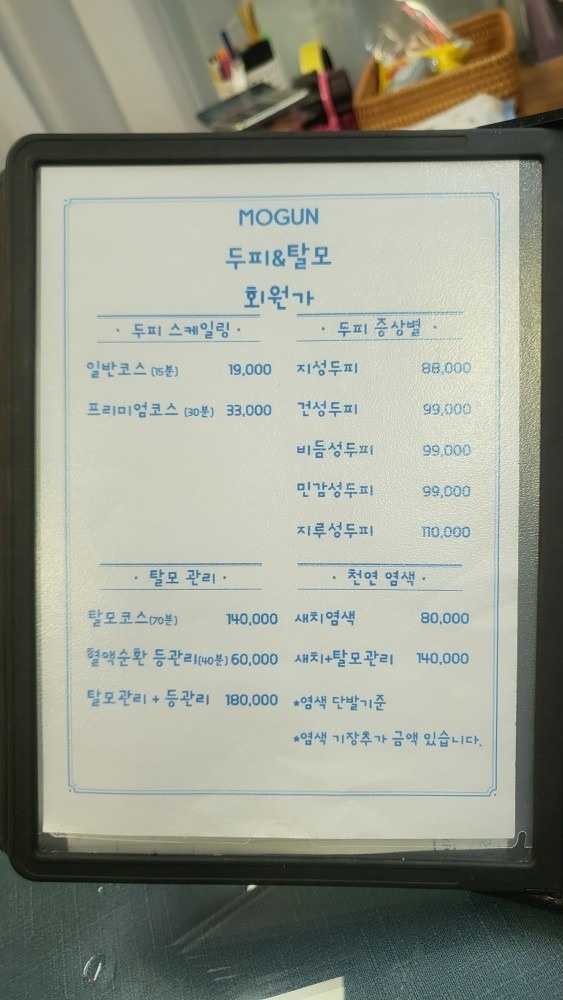 MOGUN
두피&탈모
회원가
· 두피 스케일링 ·
일반코스 (15분) 19,000
프리미엄코스 (30분) 33,000
· 두피 증상별 ·
지성두피 88,000
건성두피 99,000
비듬성두피 99,000
민감성두피 99,000
지루성두피 110,000
· 탈모 관리 ·
탈모코스(70분) 140,000
혈액순환 등관리(40분) 60,000
탈모관리 + 등관리 180,000
· 천연 염색 ·
새치염색 80,000
새치+탈모관리 140,000
*염색 단발기준
*염색 기장추가 금액 있습니다.